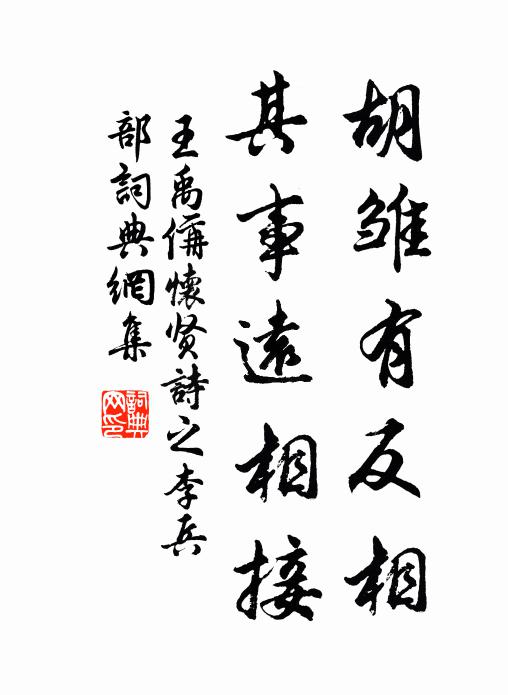 胡雛有反相
其事遠相接
王禹偁懷贤詩之李兵
部詞典網集
詞典
网印